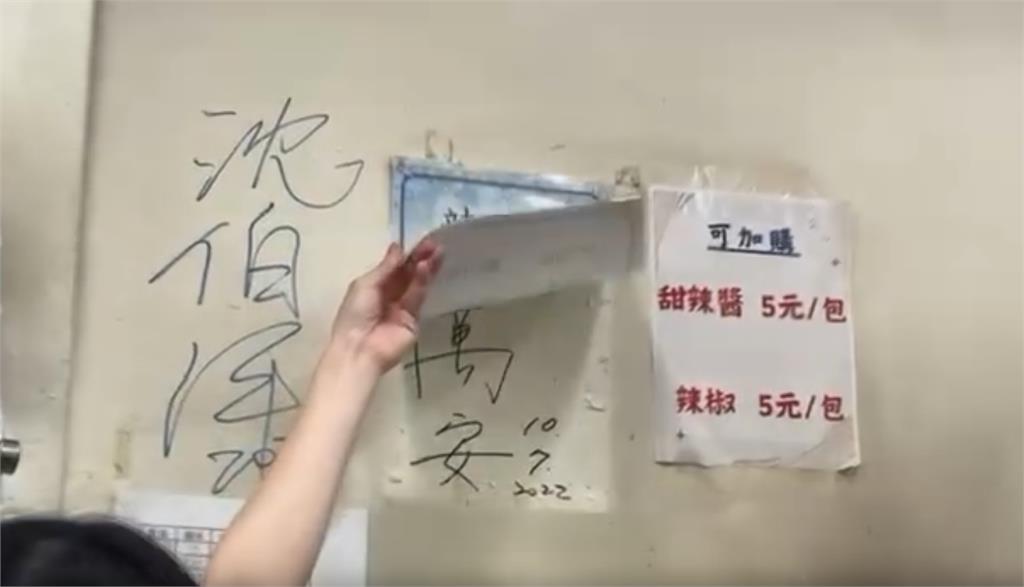 沈
伯
洋
20
萬
安
10.
7.
2022
可加購
甜辣醬 5元/包
辣椒 5元/包